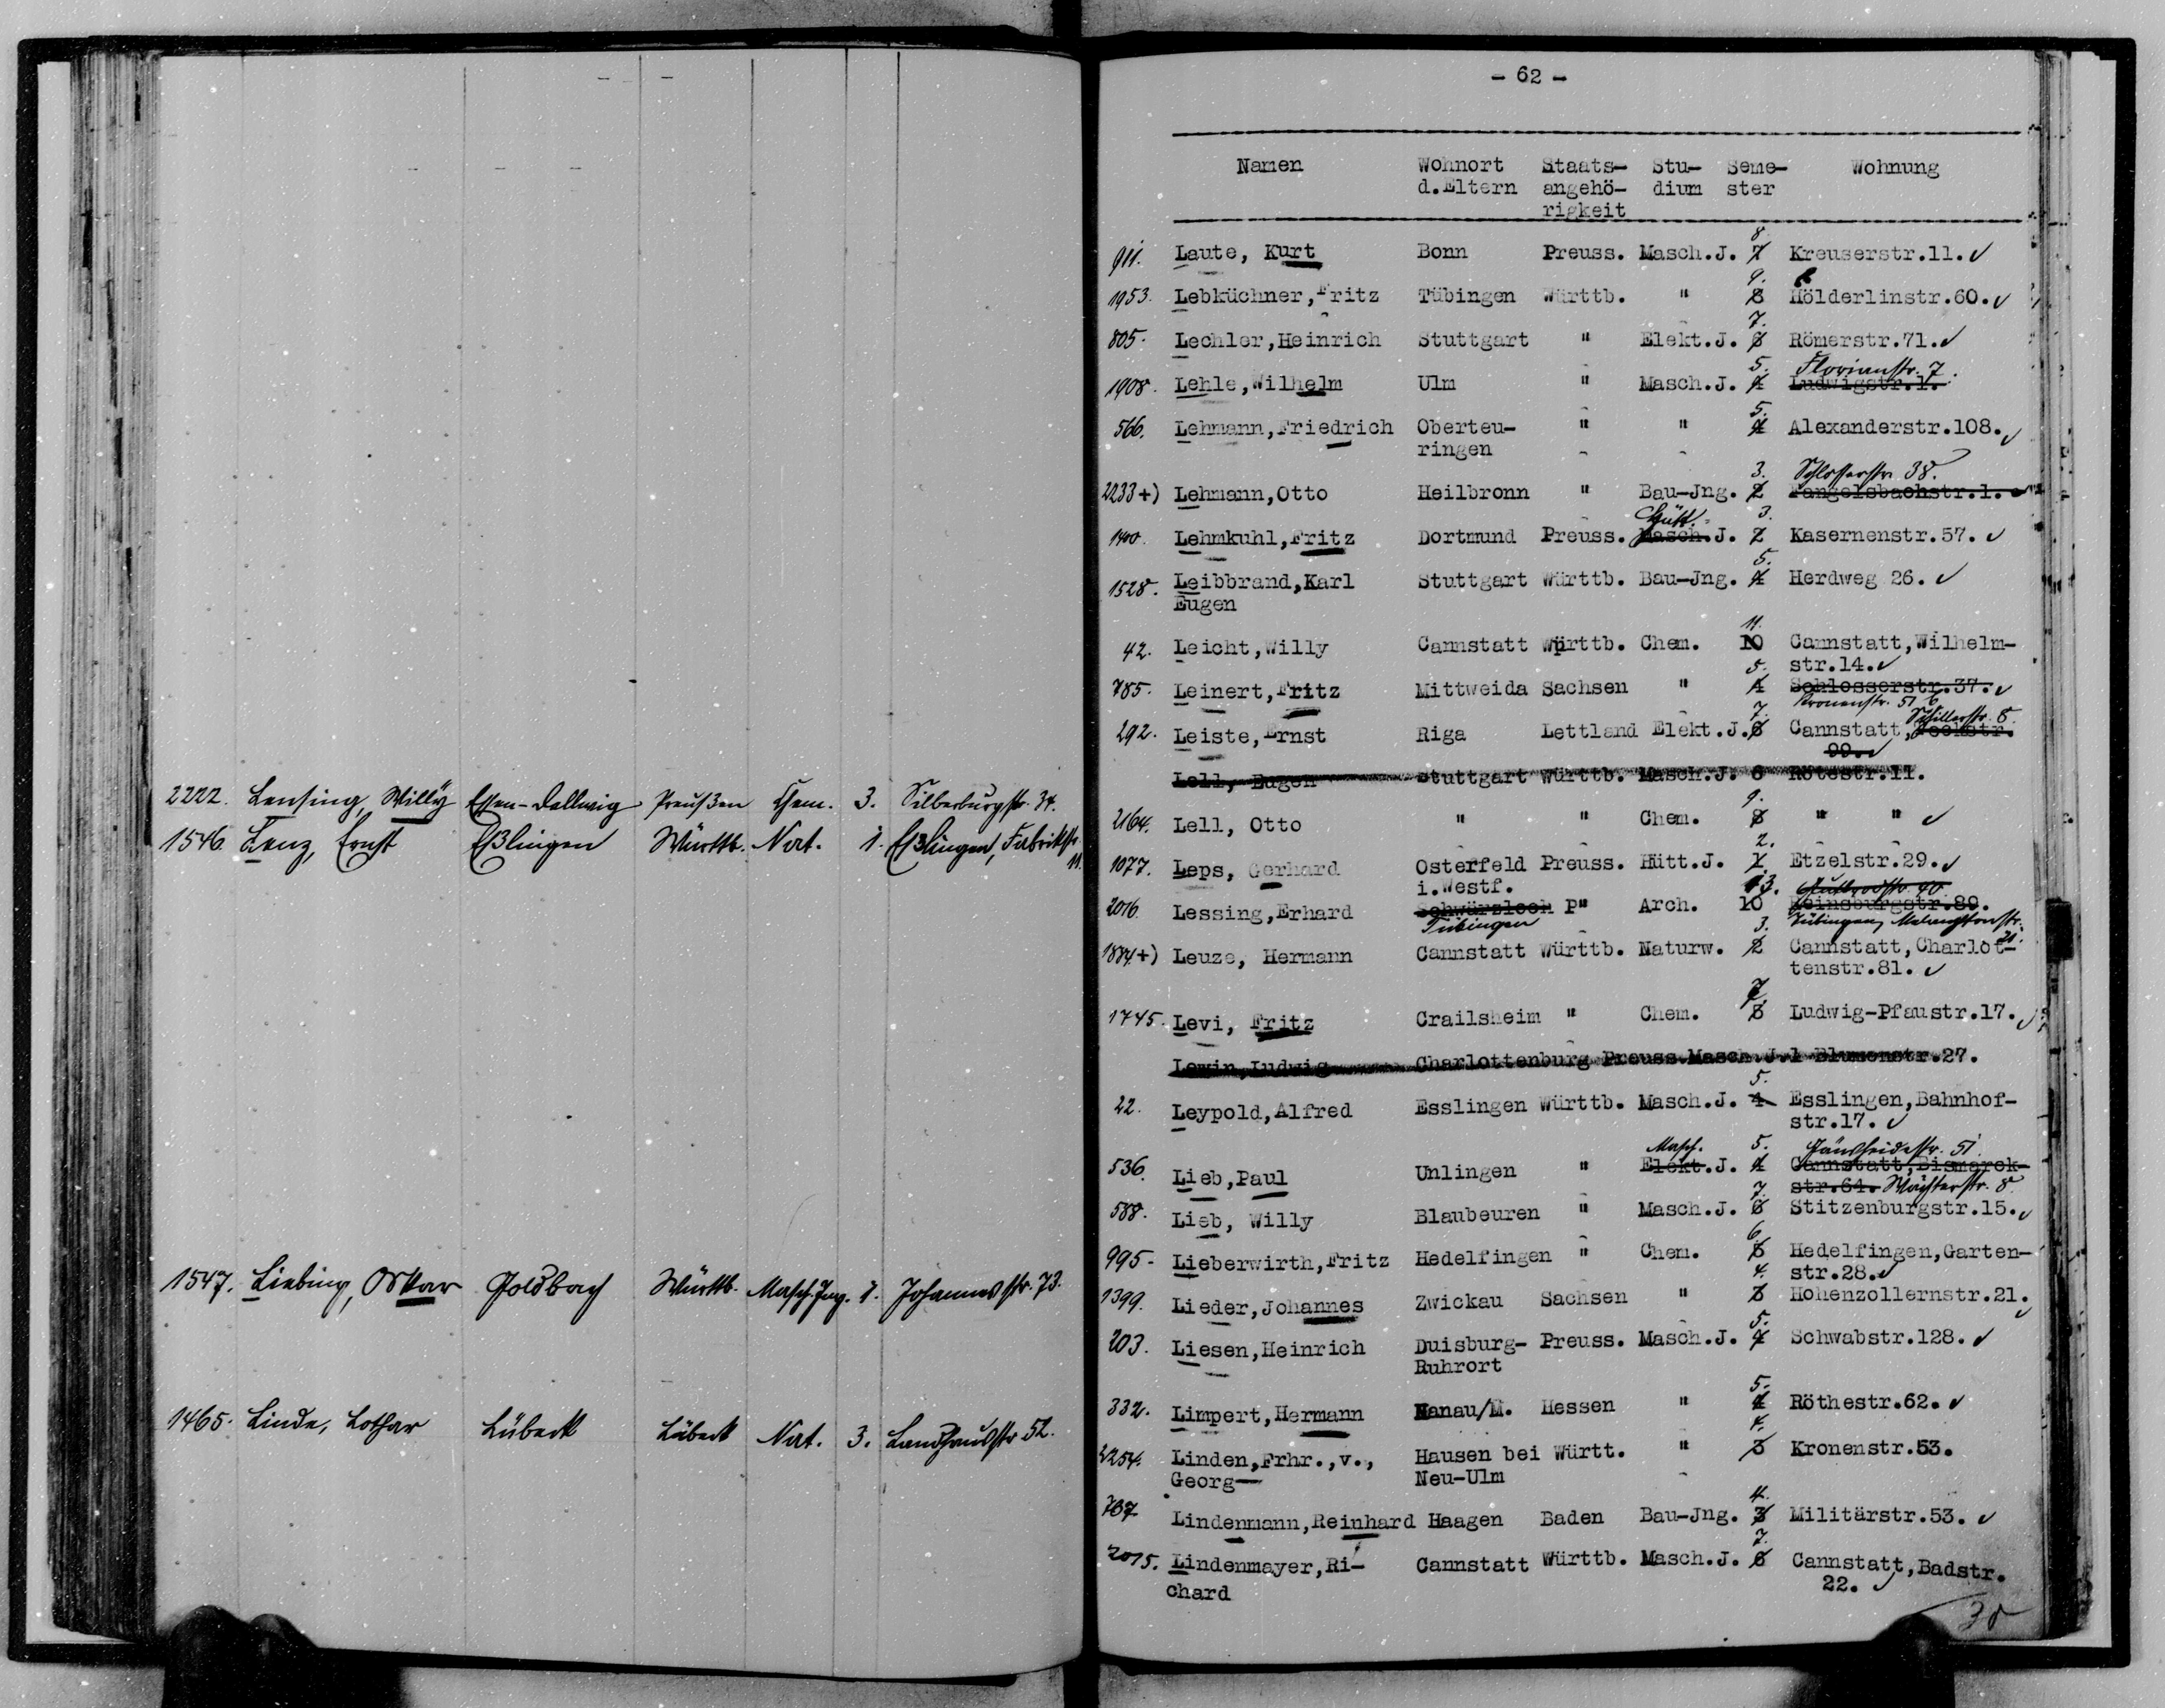 2222. Lensing, Willy Essen-Dellwig Preußen Chem. 3. Silberburgstr. 34.
1546 Lenz, Ernst Eßlingen Württb. Nat. 1. Eßlingen, Fabrikstr.
11.
1547. Liebing, Oskar Goldbach Württb. Masch. Ing. 1. Johannesstr. 73.
1465. Linde, Lothar Lübeck Lübeck Nat. 3. Landhausstr. 52.
- 62 -
Namen Wohnort Staats- Stu- Seme- Wohnung
d.Eltern angehö- dium ster
rigkeit
8
911. Laute, Kurt Bonn Preuss. Masch.J. 7 Kreuserstr.11.
9.
1953. Lebküchner, Fritz Tübingen Württb. " 8 Hölderlinstr.60.
7.
805. Lechler, Heinrich Stuttgart " Elekt.J. 6 Römerstr.71.
5. Florianstr. 7.
1908. Lehle, Wilhelm Ulm " Masch.J. 4 Ludwigstr.1.
5.
566. Lehmann, Friedrich Oberteu- " " 4 Alexanderstr.108.
ringen
3. Schlosserstr. 38.
2233+) Lehmann, Otto Heilbronn " Bau-Jng. 2 Fangelsbachstr.1.
Hütt. 3.
1400. Lehmkuhl, Fritz Dortmund Preuss. Masch.J. 2 Kasernenstr.57.
5.
1528. Leibbrand, Karl Stuttgart Württb. Bau-Jng. 4 Herdweg 26.
Eugen
11.
42. Leicht, Willy Cannstatt Württb. Chem. 10 Cannstatt, Wilhelm-
str.14.
5.
785. Leinert, Fritz Mittweida Sachsen " 4 Schlosserstr.37.
Kronenstr. 51
7. Schillerstr. 8.
292. Leiste, Ernst Riga Lettland Elekt.J. 6 Cannstatt, Teckstr.
99.
Lell, Eugen Stuttgart Württb. Masch.J. 6 Rotestr.11.
9.
2164. Lell, Otto " " Chem. 8 " "
2.
1077. Leps, Gerhard Osterfeld Preuss. Hütt.J. 1 Etzelstr.29.
i.Westf. 13.
2016. Lessing, Erhard Schwärzloch P" Arch. 10 Reinsburgstr.89.
Tübingen Tübingen, Melanchtonstr.
31.
3.
1884+) Leuze, Hermann Cannstatt Württb. Naturw. 2 Cannstatt, Charlot-
tenstr.81.
7.
1745. Levi, Fritz Crailsheim " Chem. 6 Ludwig-Pfaustr.17.
Lewin, Ludwig Charlottenburg Preuss.Masch.J.1 Blumenstr.27.
5.
22. Leypold, Alfred Esslingen Württb. Masch.J. 4 Esslingen, Bahnhof-
str.17.
Masch. 5. Gänsheidestr. 51.
536. Lieb, Paul Unlingen " Elekt.J. 4 Cannstatt, Bismarck-
str.64. Wächterstr. 8.
7.
588. Lieb, Willy Blaubeuren " Masch.J. 6 Stitzenburgstr.15.
6.
995. Lieberwirth, Fritz Hedelfingen " Chem. 5 Hedelfingen, Garten-
str.28.
4.
1399. Lieder, Johannes Zwickau Sachsen " 3 Hohenzollernstr.21.
5.
203. Liesen, Heinrich Duisburg- Preuss. Masch.J. 4 Schwabstr.128.
Ruhrort
5.
332. Limpert, Hermann Hanau/M. Hessen " 4 Röthestr.62.
4.
2254. Linden, Frhr., v., Hausen bei Württ. " 3 Kronenstr.53.
Georg Neu-Ulm
4.
787 Lindenmann, Reinhard Haagen Baden Bau-Jng. 3 Militärstr.53.
7.
2015. Lindenmayer, Ri- Cannstatt Württb. Masch.J. 6 Cannstatt, Badstr.
chard 22.
30